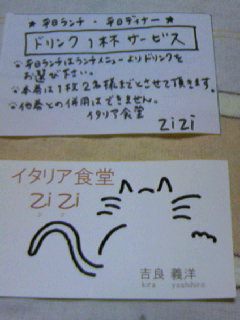 ★ 平日ランチ・平日ディナー ★
ドリンク1杯サービス
◦平日ランチはランチメニューよりドリンクを
お選び下さい。
◦本券は1枚2名様までとさせて頂きます。
◦他券との併用はできません。
イタリア食堂
ZiZi
イタリア食堂
ZiZi
ジ ジ
吉良 義洋
kira yoshihiro